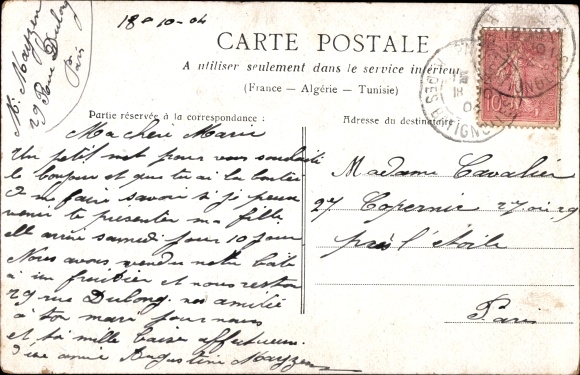 18-10-04
Mr Mayzen
29 Rue Dulong
Paris
CARTE POSTALE
A utiliser seulement dans le service intérieur
(France — Algérie — Tunisie)
Partie réservée à la correspondance :
Adresse du destinataire :
Ma chère Marie
Un petit mot pour vous
le bonjour et que tu ai la bonté
me faire savoir si je peux
venir te presenter ma fille
elle arrive samedi pour 10 jour
Nous avons vendu notre
à un fruitier et nous
29 rue Dulong nos amitié
à ton mari pour nous
et toi mille baise affectueux
d'une amie Augustine Mayzen
Madame Cavalier
27 Copernic 27 ou 29
près l'étoile
Paris
10